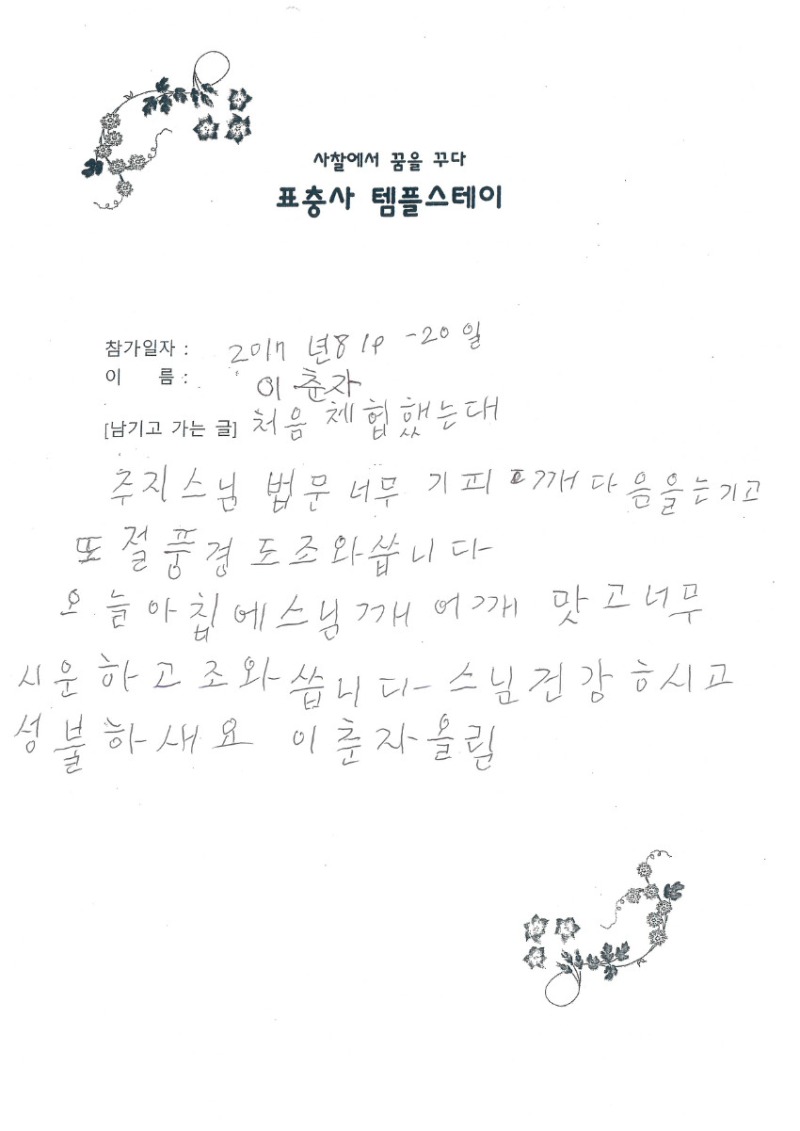 사찰에서 꿈을 꾸다
표충사 템플스테이
참가일자 : 2017 년 8 19 -20 일
이 름 : 이춘자
[남기고 가는 글] 처음 체험했는대
주지스님 법문 너무 기피 깨다음을 는기고
또 절풍경도 조와씁니다
오늘아칩에 스님깨 어깨 맛고 너무
시운하고 조와씁니다 스님 건강ㅎ시고
성불하새요 이춘자올림